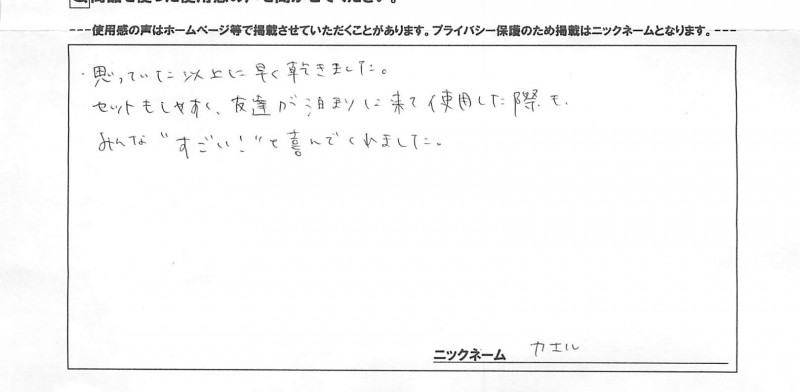 商品を使った使用感の声を聞かせてください。
---使用感の声はホームページ等で掲載させていただくことがあります。プライバシー保護のため掲載はニックネームとなります。---
・思っていた以上に早く乾きました。
セットもしやすく、友達が泊まりに来て使用した際も、
みんな"すごい!"と喜んでくれました。
ニックネーム カエル